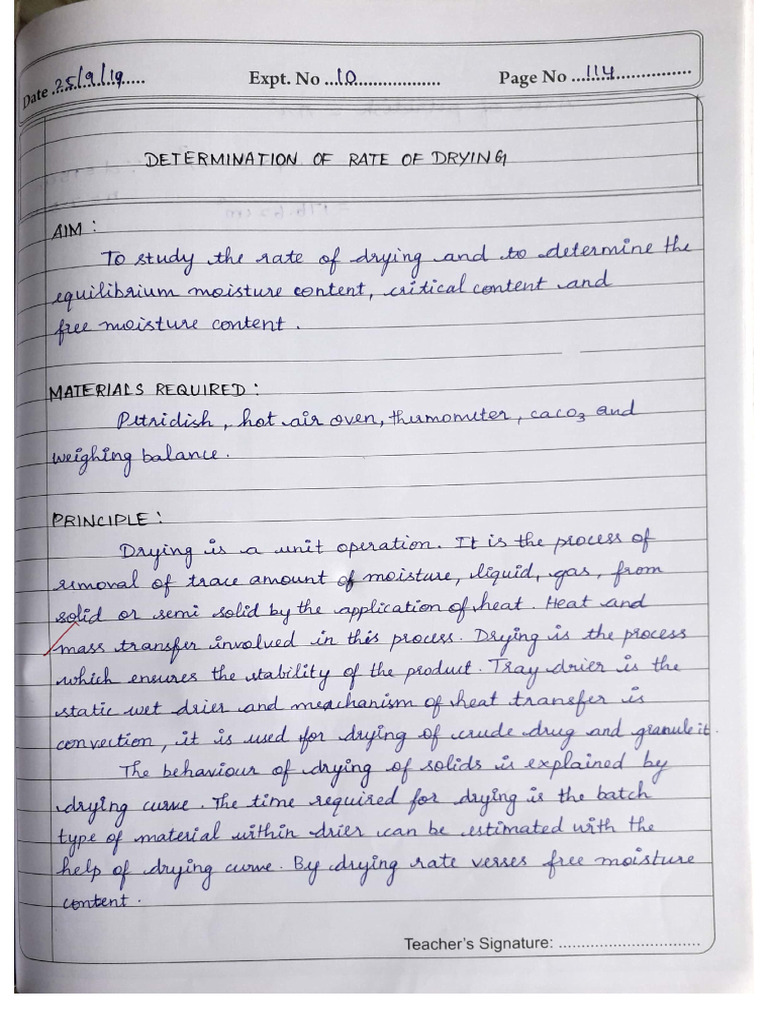 Date 25/9/19 Expt. No 10 Page No 114
DETERMINATION OF RATE OF DRYING
AIM :
To study the rate of drying and to determine the
equilibrium moisture content, critical content and
free moisture content .
MATERIALS REQUIRED :
Petridish , hot air oven, thermometer , caco3 and
weighing balance .
PRINCIPLE :
Drying is a unit operation. It is the process of
removal of trace amount of moisture, liquid, gas, from
solid or semi solid by the application of heat. Heat and
mass transfer involved in this process. Drying is the process
which ensures the stability of the product. Tray drier is the
static wet drier and meachanism of heat transfer is
convection, it is used for drying of crude drug and granule it.
The behaviour of drying of solids is explained by
drying curve. The time required for drying is the batch
type of material within drier can be estimated with the
help of drying curve. By drying rate verses free moisture
content .
Teacher's Signature: ................................